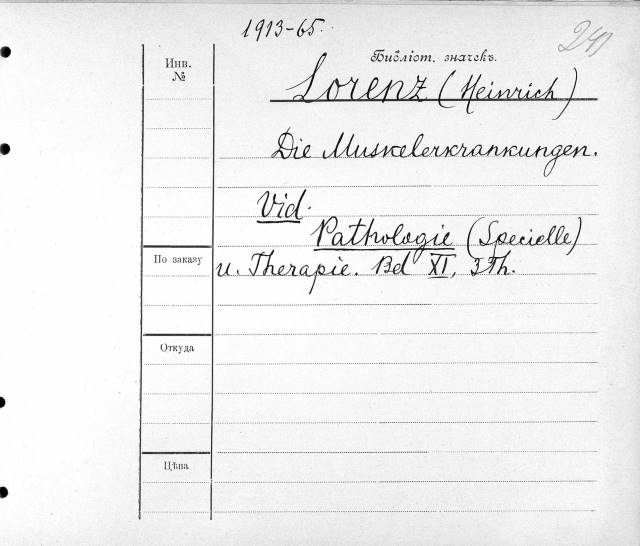 1913-65.
241
Инв.
№
Библіот. значекъ.
Lorenz (Heinrich)
Die Muskelerkrankungen.
Vid.
Pathologie (Specielle)
По заказу
u. Therapie. Bd XI, 3Th.
Откуда
Цѣна